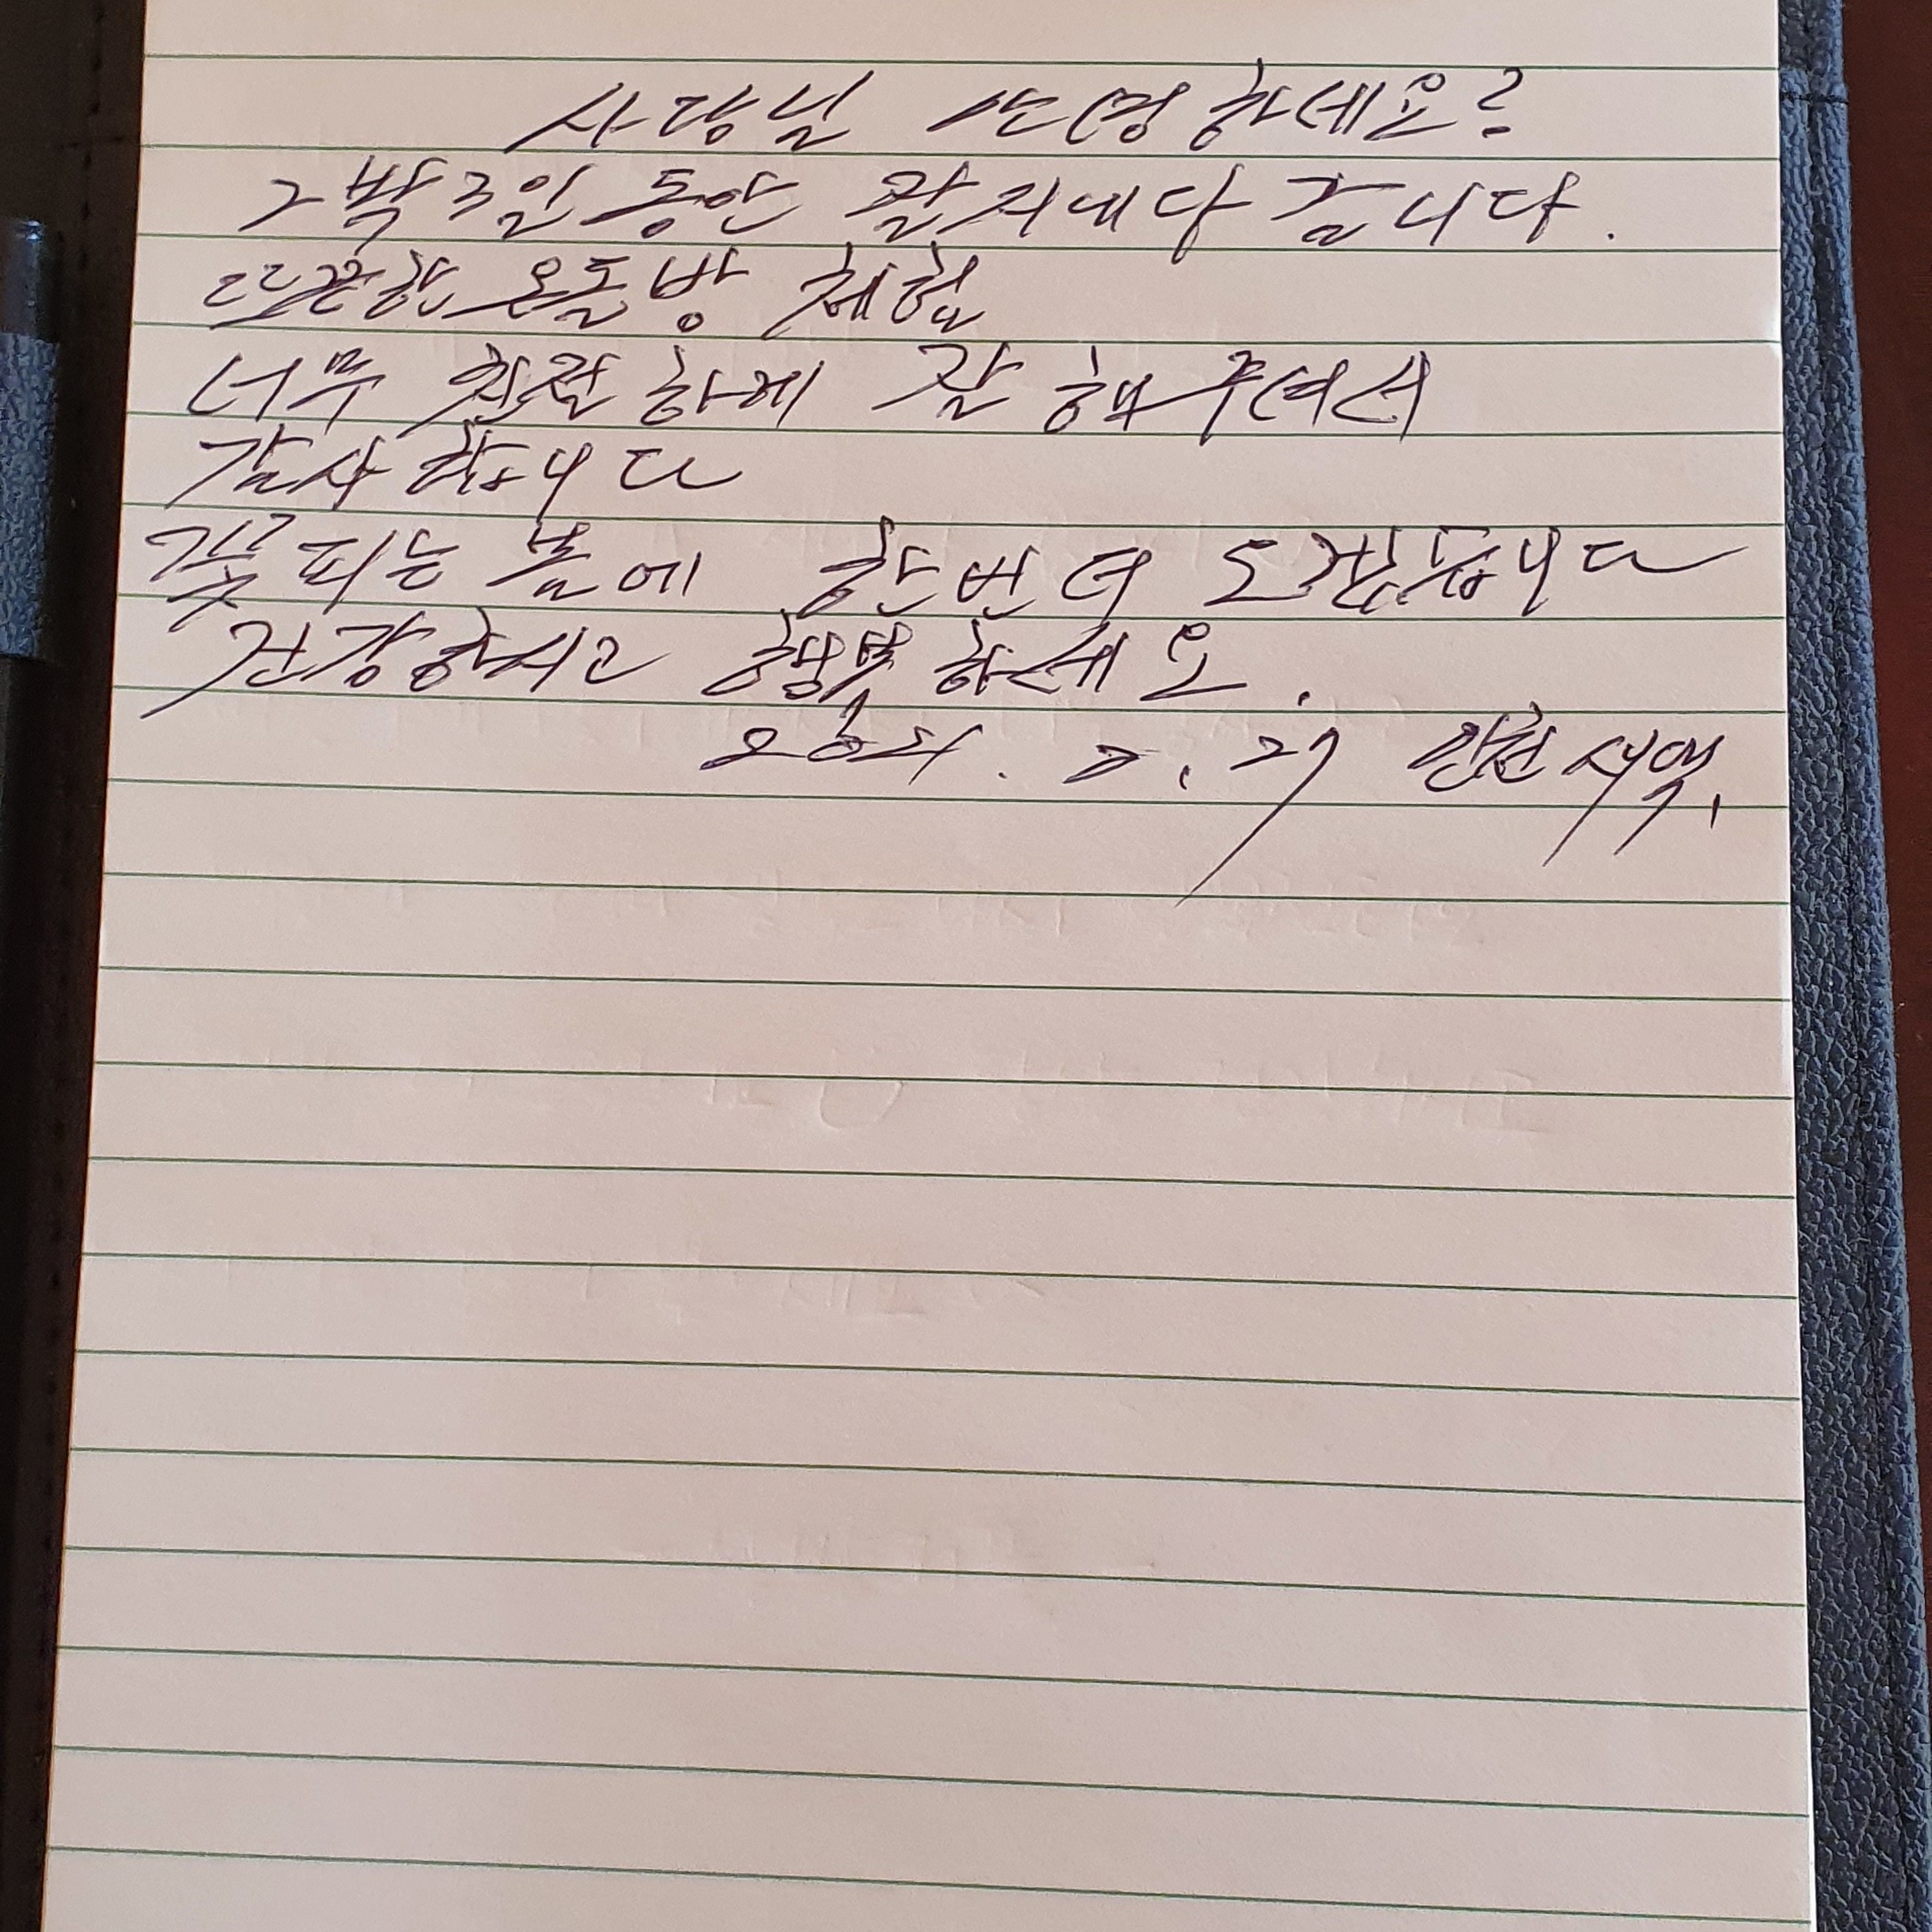 사장님 안녕하세요?
2박 3일 동안 잘 지내다 갑니다.
따끈한 온돌방 체험
너무 친절하게 잘 해주셔서
감사합니다
꽃피는 봄에 한번 더 도전합니다
건강하시고 행복하세요.
인천